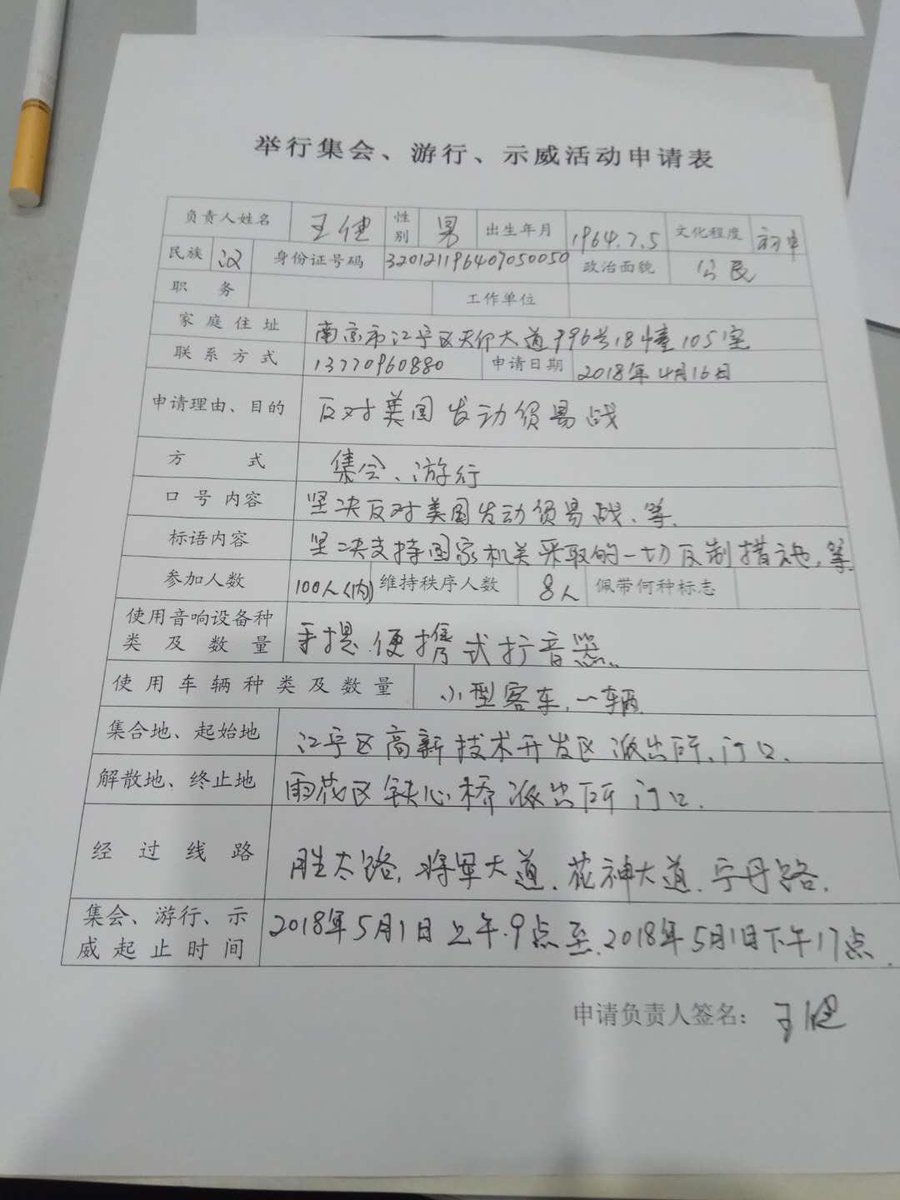 举行集会、游行、示威活动申请表
负责人姓名 王健 性别 男 出生年月 1964.7.5 文化程度 初中
民族 汉 身份证号码 320121196407050050 政治面貌 公民
职务 工作单位
家庭住址 南京市江宁区天印大道996号18幢105室
联系方式 13770960880 申请日期 2018年4月16日
申请理由、目的 反对美国发动贸易战
方式 集会、游行
口号内容 坚决反对美国发动贸易战、等
标语内容 坚决支持国家机关采取的一切反制措施,等
参加人数 100人(内) 维持秩序人数 8人 佩带何种标志
使用音响设备种
类及数量 手提便携式扩音器
使用车辆种类及数量 小型客车,一辆
集合地、起始地 江宁区高新技术开发区派出所,门口.
解散地、终止地 雨花区铁心桥派出所门口.
经过线路 胜太路,将军大道,花神大道,宁丹路.
集会、游行、示
威起止时间 2018年5月1日上午9点至2018年5月1日下午17点.
申请负责人签名: 王健